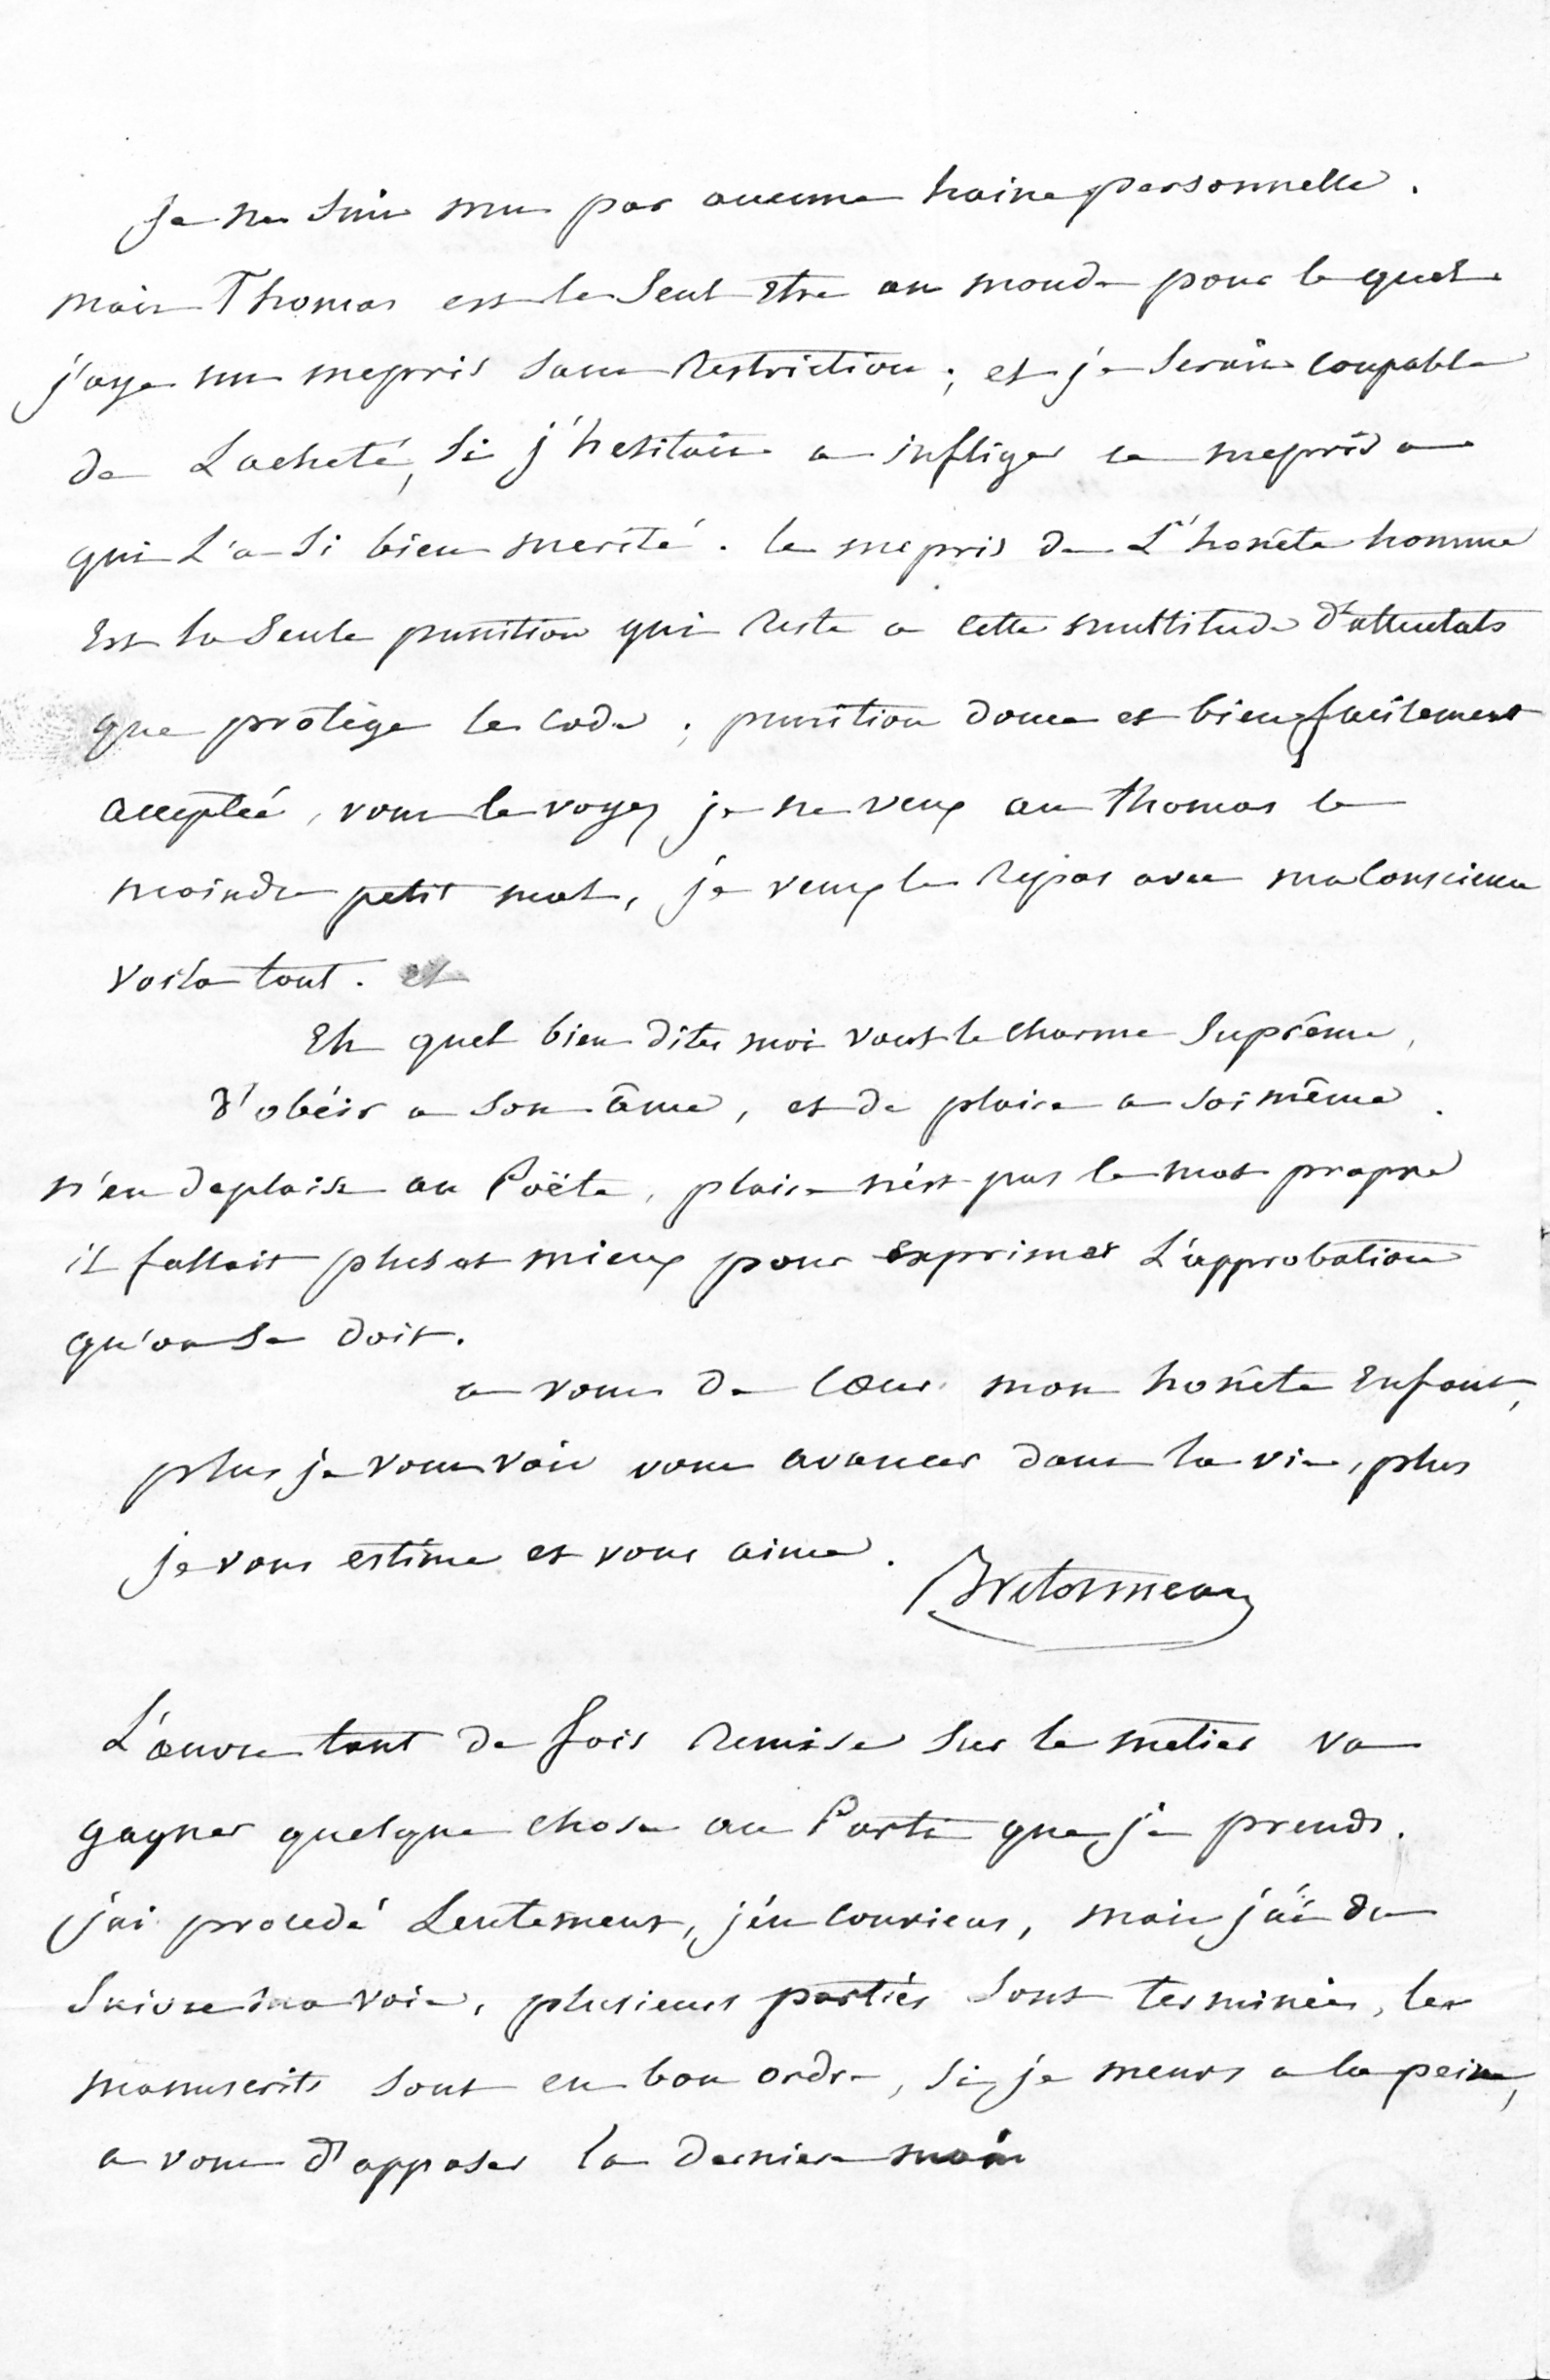 Je ne suis mu par aucune haine personnelle.
mais Thomas est le seul etre au monde pour lequel
j'aye un mepris sans restriction ; et je serais coupable
de Lacheté, si j'hesitais a infliger ce mepris a
qui L'a si bien merité. le mepris de L'honête homme
Est la seule punition qui reste a cette multitude d'attentats
que protège le code ; punition douce et bien facilement
acceptée, vous le voyez je ne veux au thomas le
moindre petit mal, je veux le repos avec ma Conscience
voila tout. et
Eh quel bien dites moi vaut le charme suprême,
d'obéir a son âme, et de plaire a soi même.
n'en deplaise au Poëte, plaire n'est pas le mot propre
il fallait plus et mieux pour exprimer L'approbation
qu'on se doit.
a vous de Cœur mon honête Enfant,
plus je vous vois vous avancer dans la vie, plus
je vous estime et vous aime.
Bretonneau
L'œuvre tant de fois remise sur le metier va
gagner quelque chose au Parti que je prends.
j'ai procedé Lentement, j'en conviens, mais j'ai du
suivre ma voie, plusieurs parties sont terminées, les
manuscrits sont en bon ordre, si je meurs a la peine,
a vous d'apposer la derniere main